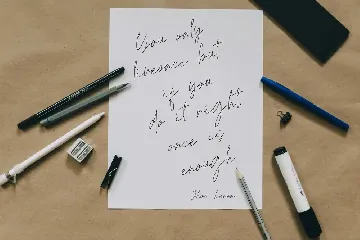 You only
live once but
if you
do it right
once is
enough!